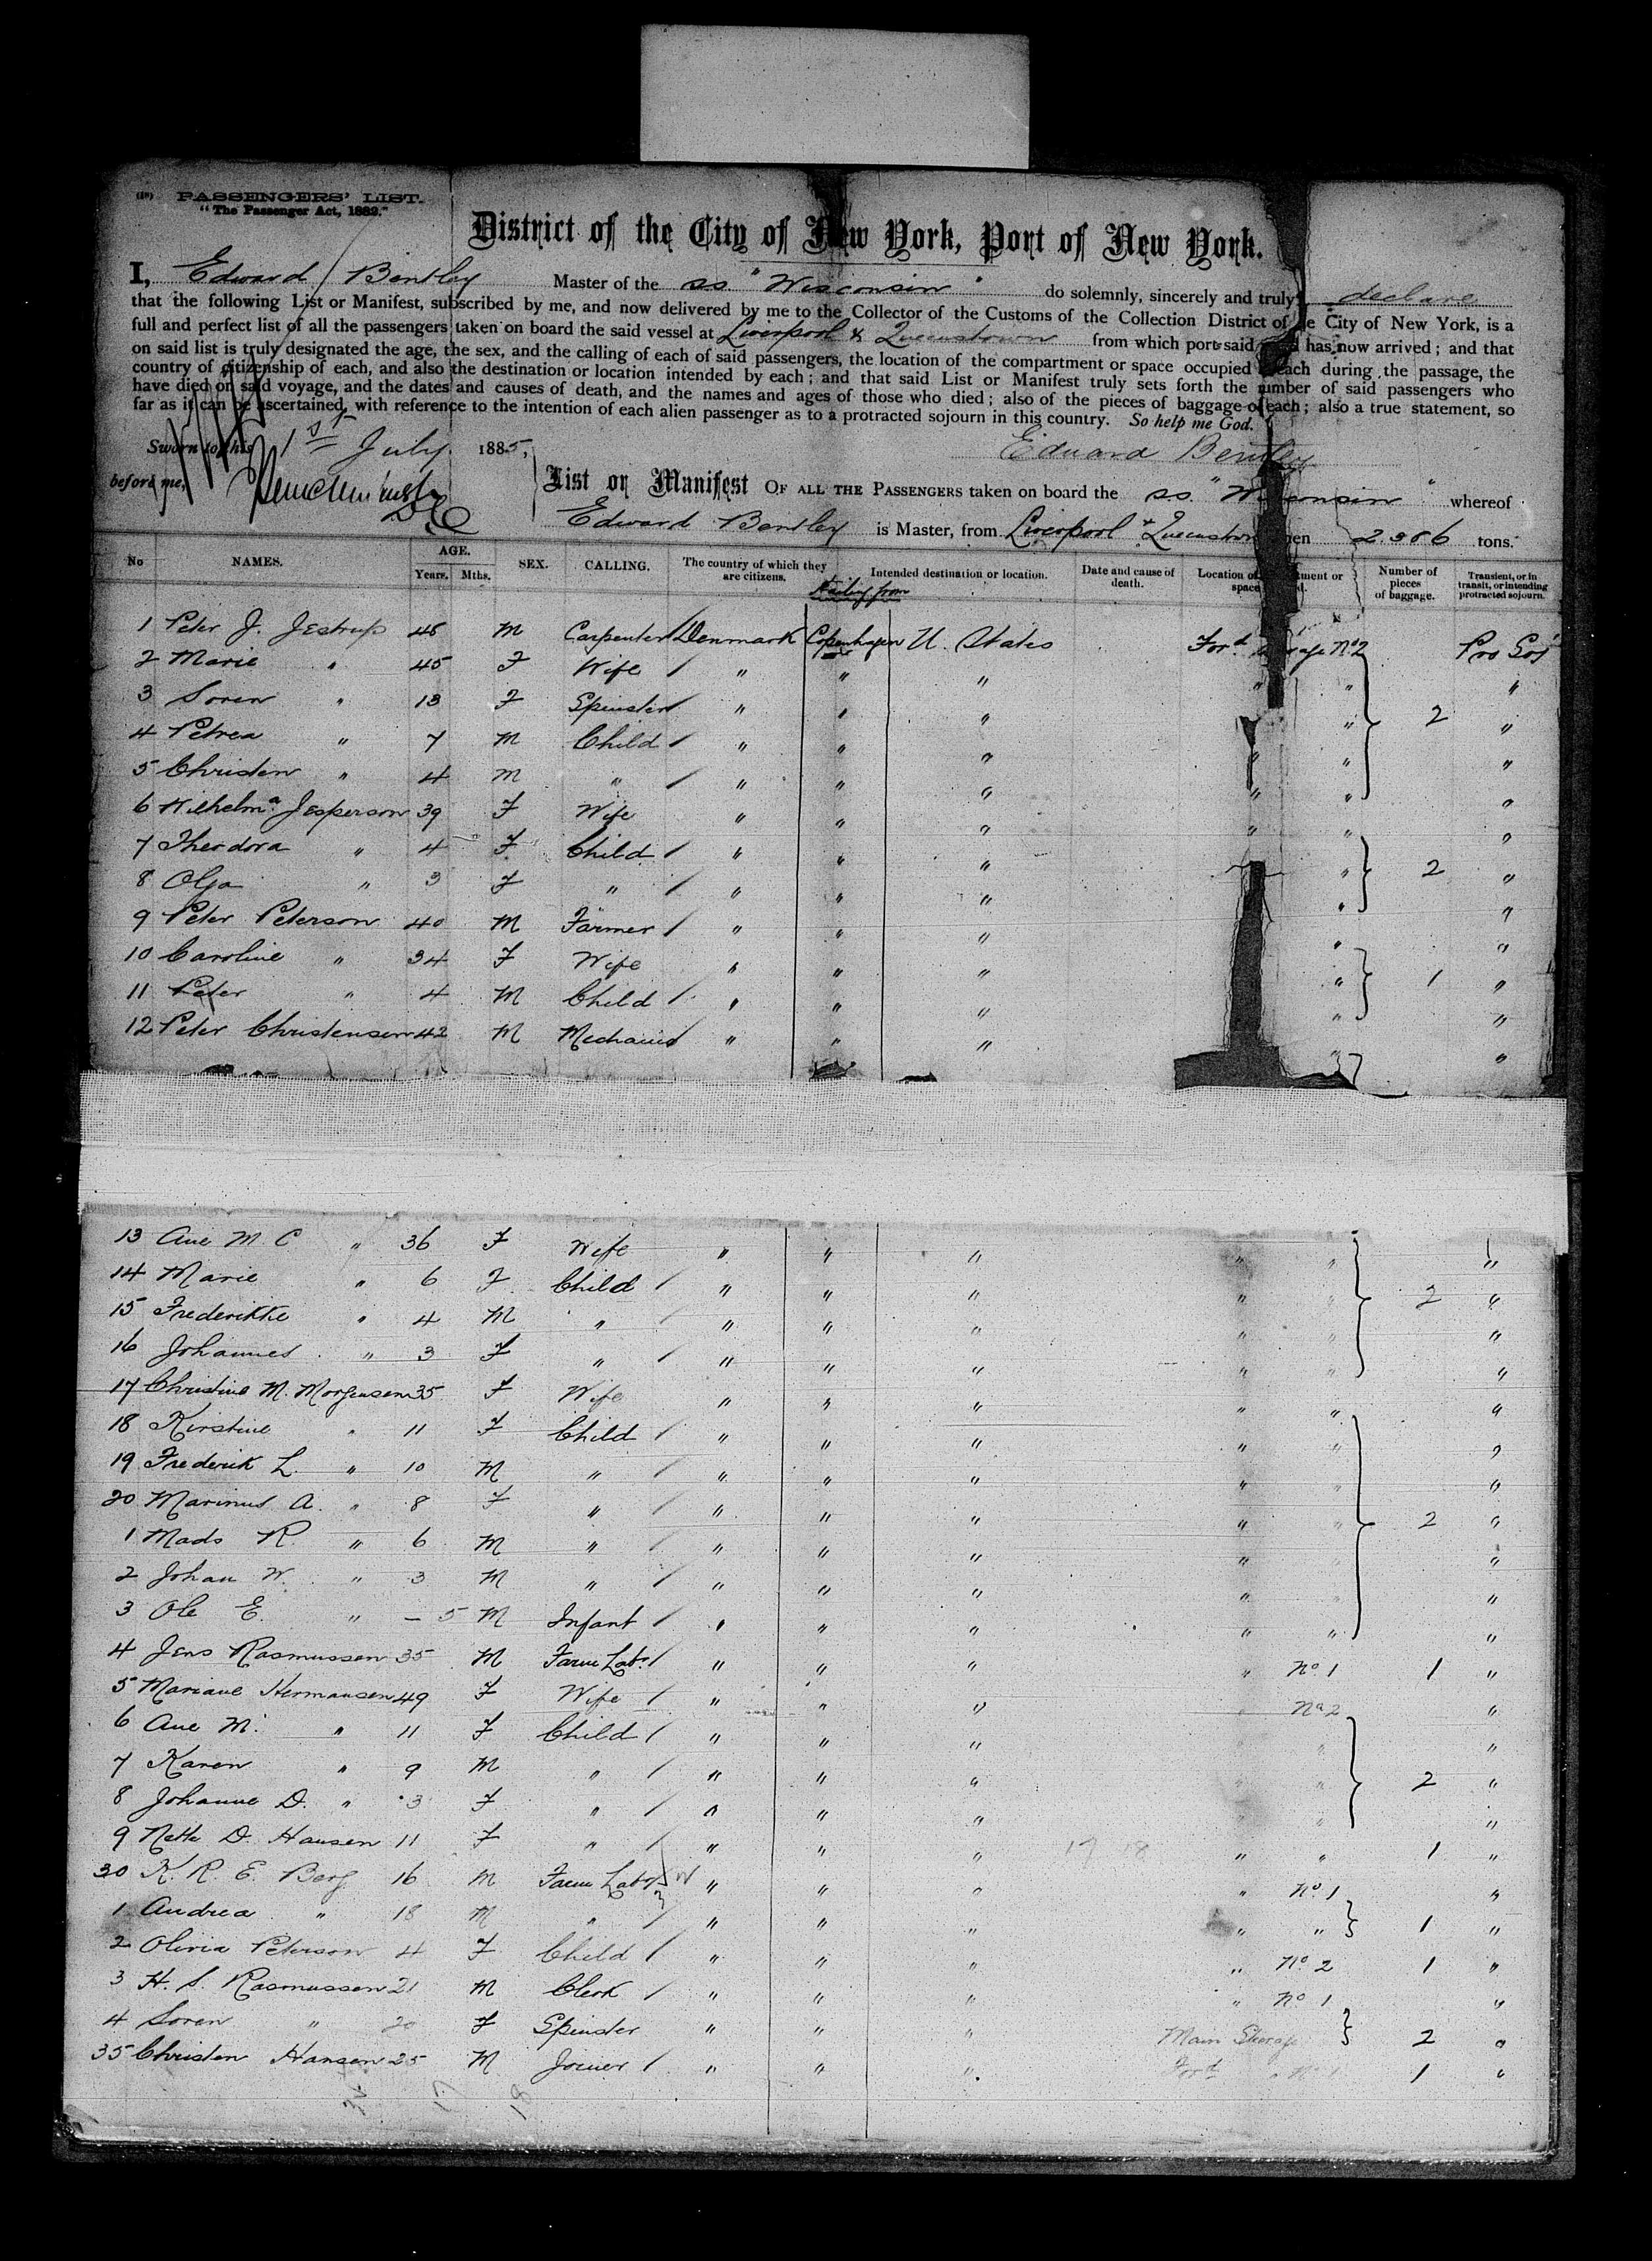 (18) PASSENGERS' LIST.
"The Passenger Act, 1882."
District of the City of New York, Port of New York.
I, Edward Bentley Master of the ss. "Wisconsin" do solemnly, sincerely and truly declare
that the following List or Manifest, subscribed by me, and now delivered by me to the Collector of the Customs of the Collection District of the City of New York, is a
full and perfect list of all the passengers taken on board the said vessel at Liverpool & Queenstown from which port said has now arrived; and that
on said list is truly designated the age, the sex, and the calling of each of said passengers, the location of the compartment or space occupied each during the passage, the
country of citizenship of each, and also the destination or location intended by each; and that said List or Manifest truly sets forth the number of said passengers who
have died on said voyage, and the dates and causes of death, and the names and ages of those who died; also of the pieces of baggage of each; also a true statement, so
far as it can be ascertained, with reference to the intention of each alien passenger as to a protracted sojourn in this country. So help me God.
Sworn to this 1st July 1885, Edward Bentley
before me,
List or Manifest OF ALL THE PASSENGERS taken on board the ss. "Wisconsin" whereof
Edward Bentley is Master, from Liverpool & Queenstown tons.
No NAMES. AGE. Years. Mths. SEX. CALLING. The country of which they are citizens. Hailing from Intended destination or location. Date and cause of death. Location of space Number of pieces of baggage. Transient, or in transit, or intending protracted sojourn.
1 Peter J. Jestrup 46 M Carpenter Denmark Copenhagen U. States Ford No 2 Pro Soj
2 Marie " 45 F Wife " " " " " "
3 Soren " 13 F Spinster " " " " 2 "
4 Petrea " 7 M Child " " " " " "
5 Christen " 4 M " " " " " " "
6 Wilhelma Jesperson 39 F Wife " " " " " "
7 Theodora " 4 F Child " " " " 2 "
8 Olga " 3 F " " " " " "
9 Peter Peterson 40 M Farmer " " " " "
10 Caroline " 34 F Wife " " " " 1 "
11 Peter " 4 M Child " " " " "
12 Peter Christensen 42 M Mechanic " " " " "
13 Ane M C " 36 F Wife " " " " " "
14 Marie " 6 F Child " " " " " 2 "
15 Frederikke " 4 M " " " " " " "
16 Johannes " 3 F " " " " " " "
17 Christine M. Morgensen 35 F Wife " " " " " "
18 Kirstine " 11 F Child " " " " " "
19 Frederik L. " 10 M " " " " " " "
20 Marinus A. " 8 F " " " " " " 2 "
1 Mads R. " 6 M " " " " " "
2 Johan W. " 3 M " " " " " "
3 Ole E. " – 5 M Infant " " " " " "
4 Jens Rasmussen 35 M Farm Labr " " " " No 1 1 "
5 Mariane Hermansen 49 F Wife " " " No 2 "
6 Ane M. " 11 F Child " " " " "
7 Karen " 9 M " " " " " " 2 "
8 Johanne D. " 3 F " " " " " " "
9 Nette D. Hansen 11 F " " " " 17 18 " " 1 "
30 K. R. E. Berg 16 M Farm Labr " " " " No 1 "
1 Andrea " 18 M " " " " " " 1 "
2 Olivia Peterson 4 F Child " " " " No 2 1 "
3 H. S. Rasmussen 21 M Clerk " " " " No 1 "
4 Soren " 20 F Spinster " " " Main Steerage 2 "
35 Christen Hansen 25 M Joiner " " " Ford " No 1 1 "
17 18